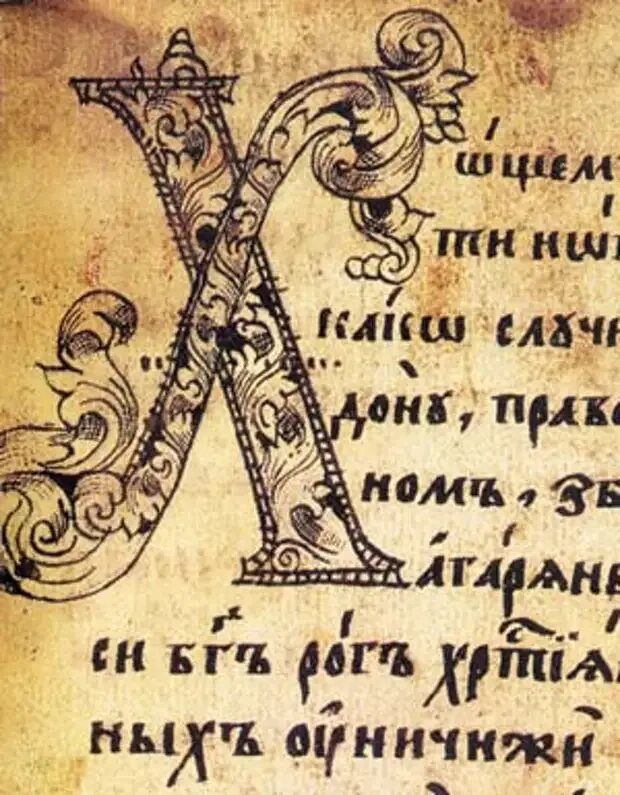 Х
ѡ́щемъ
ти нѡ́
ка́кѡ случи
до́нꙋ, право
номъ, зб
а́га́рѧн
си бг҃ъ ро́гъ хрⷭ҇тїѧ
ныхъ оу҆ничижи